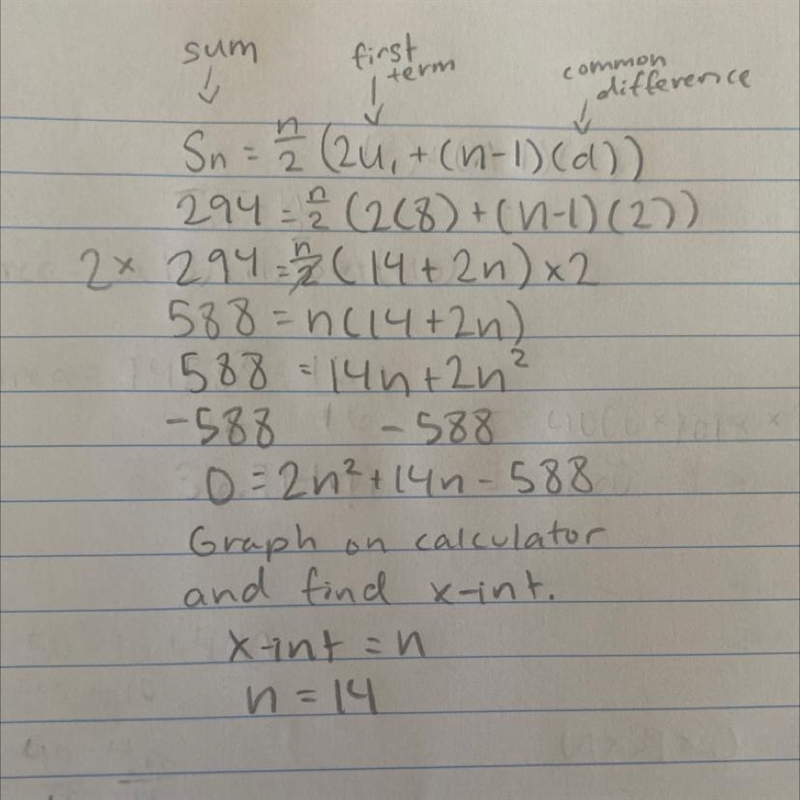 sum
first term
common difference
Sn = n/2 (2u₁ + (n-1)(d))
294 = n/2 (2(8) + (n-1)(2))
2 × 294 = n/2 (14 + 2n) × 2
588 = n(14 + 2n)
588 = 14n + 2n²
-588 -588
0 = 2n² + 14n - 588
Graph on calculator
and find x-int.
x-int = n
n = 14